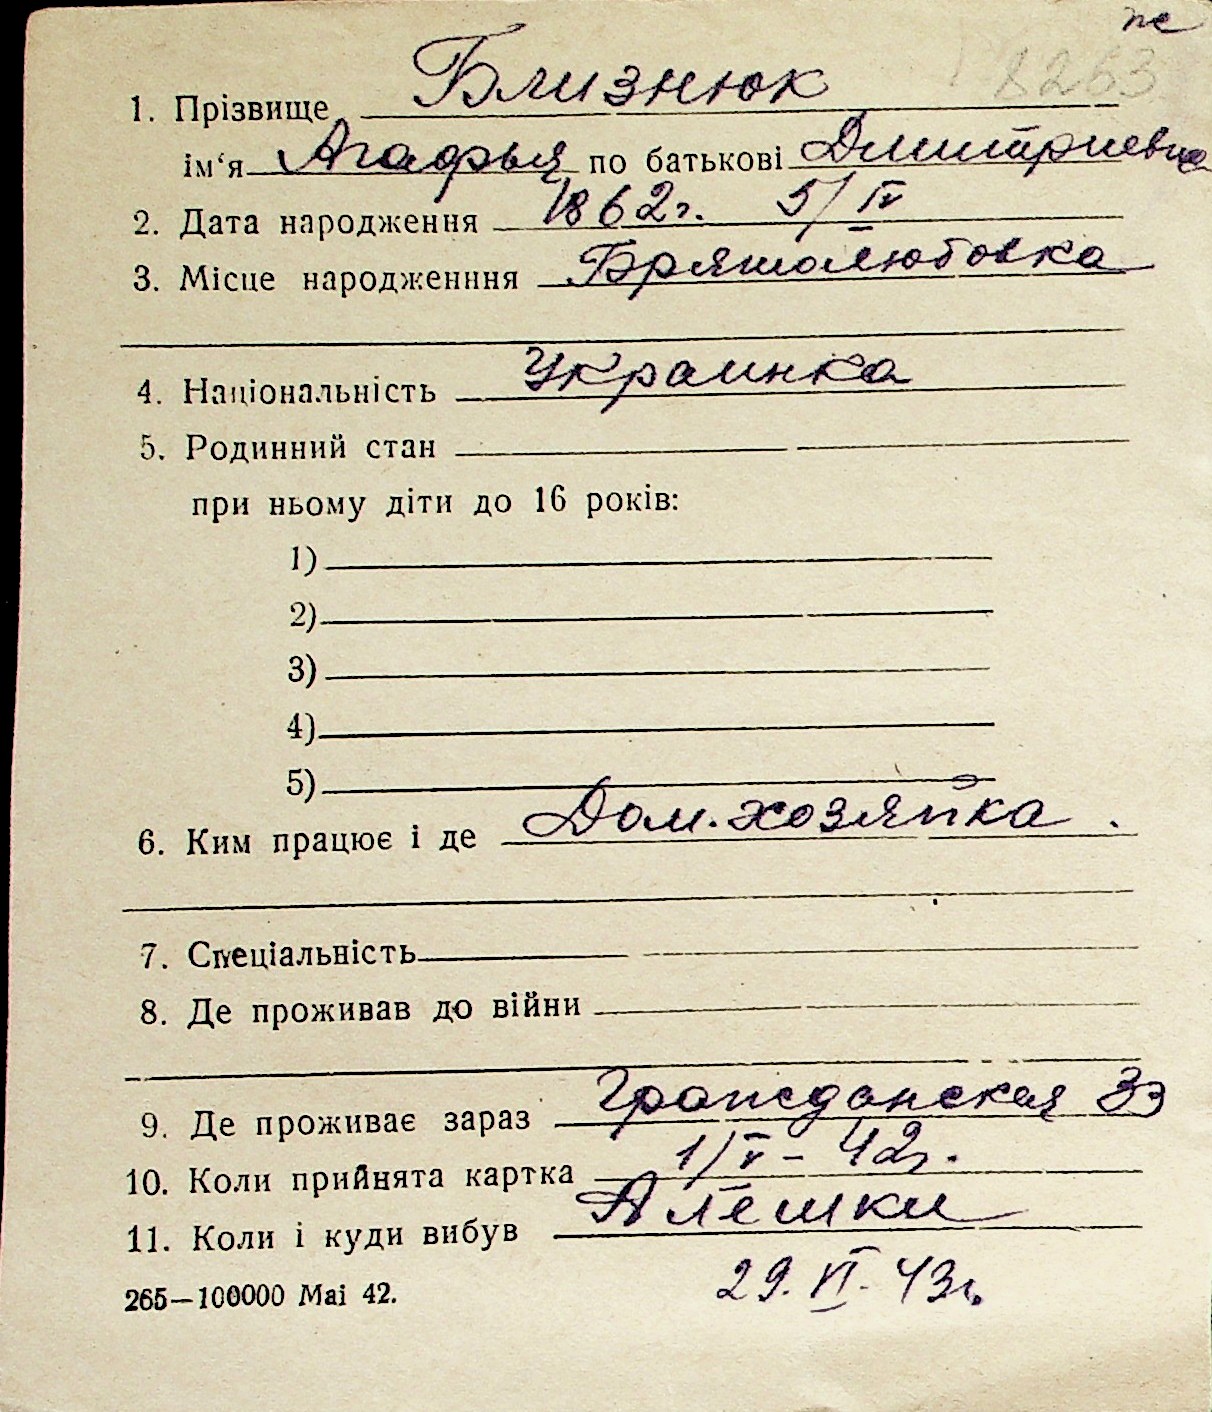 пе
8263
1. Прізвище Близнюк
ім‘я Агафья по батькові Дмитриевна
2. Дата народження 1862г. 5/IV
3. Місце народженння
4. Національність Украинка
5. Родинний стан
при ньому діти до 16 років:
1)
2)
3)
4)
5)
6. Ким працює і де Дом. хозяйка .
7. Спеціальність
8. Де проживав до війни
9. Де проживає зараз Гражданская 33
10. Коли прийнята картка 1/V – 42г.
11. Коли і куди вибув Алешки
265—100000 Mai 42. 29.VI-43г.